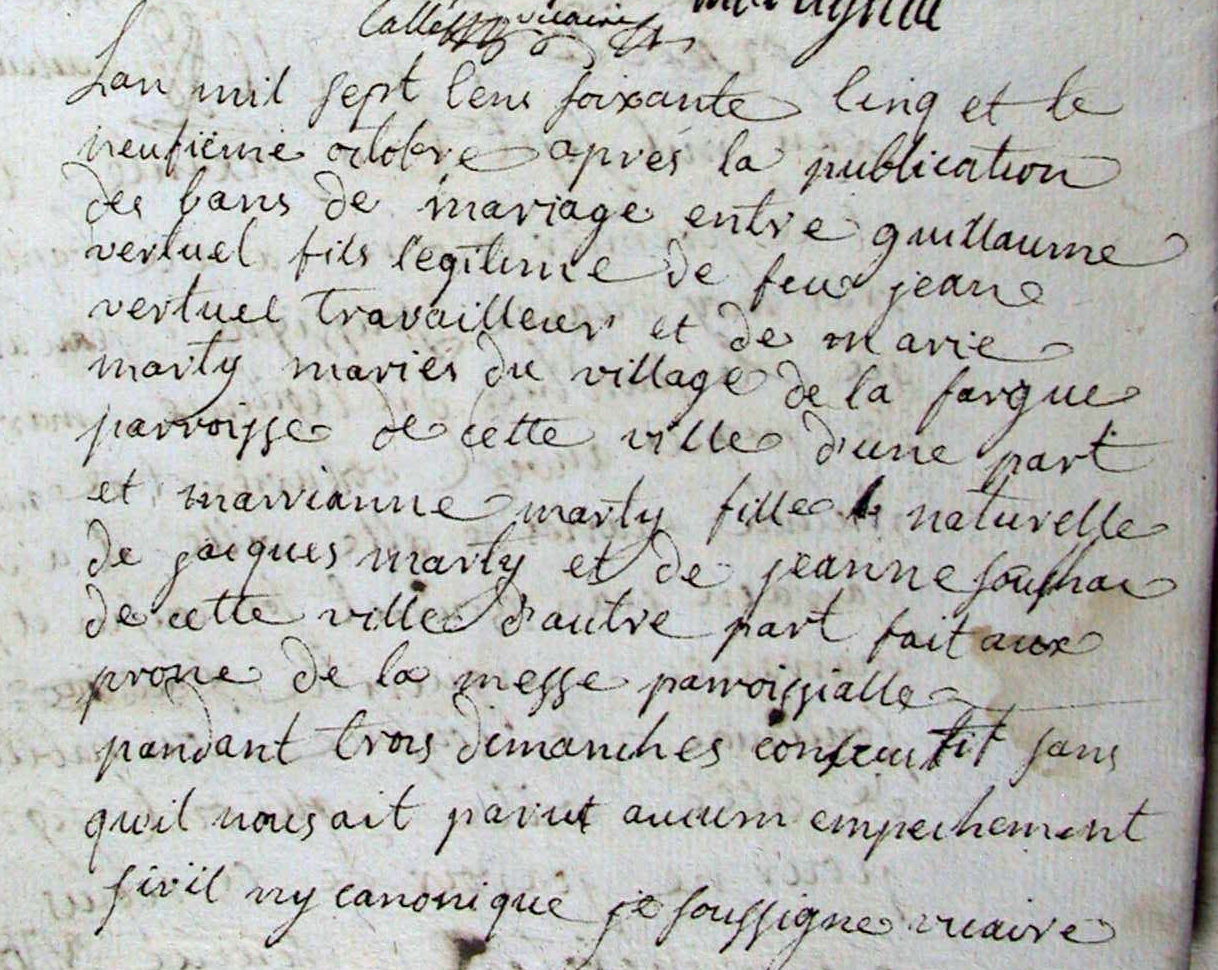 vicaire
Lan mil sept cens soixante cinq et le
neufiëme octobre apres la publication
des bans de mariage entre guillaume
vertuel fils legitime de feu jean
vertuel travailleur et de marie
marty maries du village de la fargue
parroisse de cette ville d'une part
et marrianne marty fille naturelle
de jacques marty et de jeanne
de cette ville d'autre part fait aux
prone de la messe parroissialle
pandant trois dimanches consecutif sans
quil nous ait parut aucum empechement
sivil ny canonique je soussigne vicaire